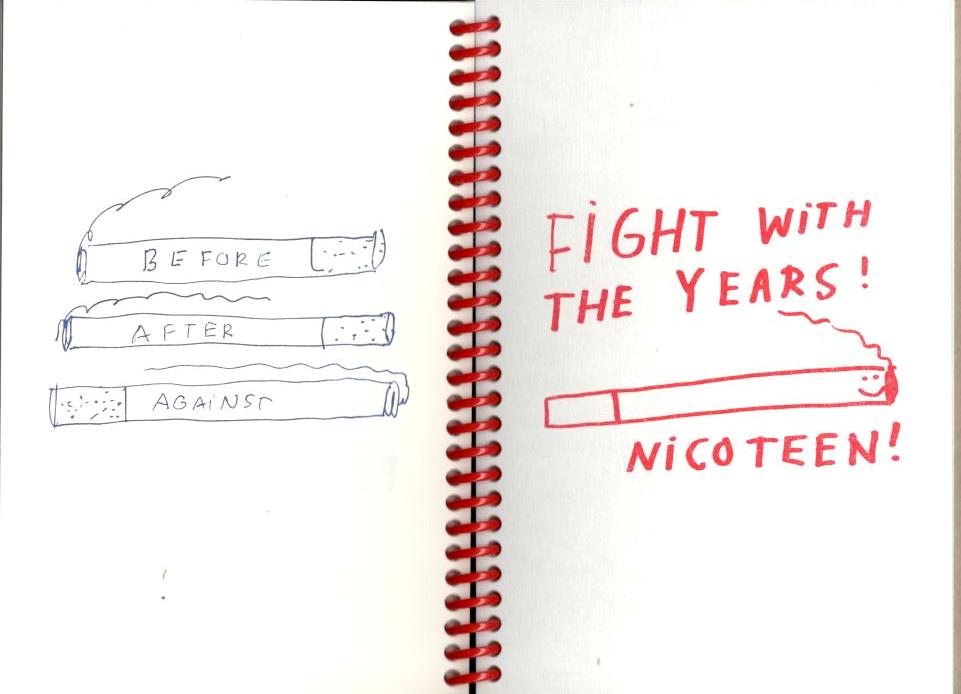 BEFORE
AFTER
AGAiNST
FiGHT WiTH
THE YEARS!
NiCOTEEN!